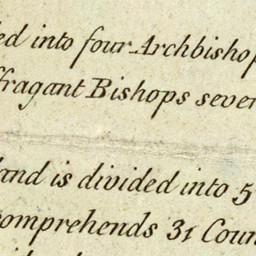 ed into four Archbishop
ffragant Bishops seven
land is divided into 5
comprehends 31 Coun